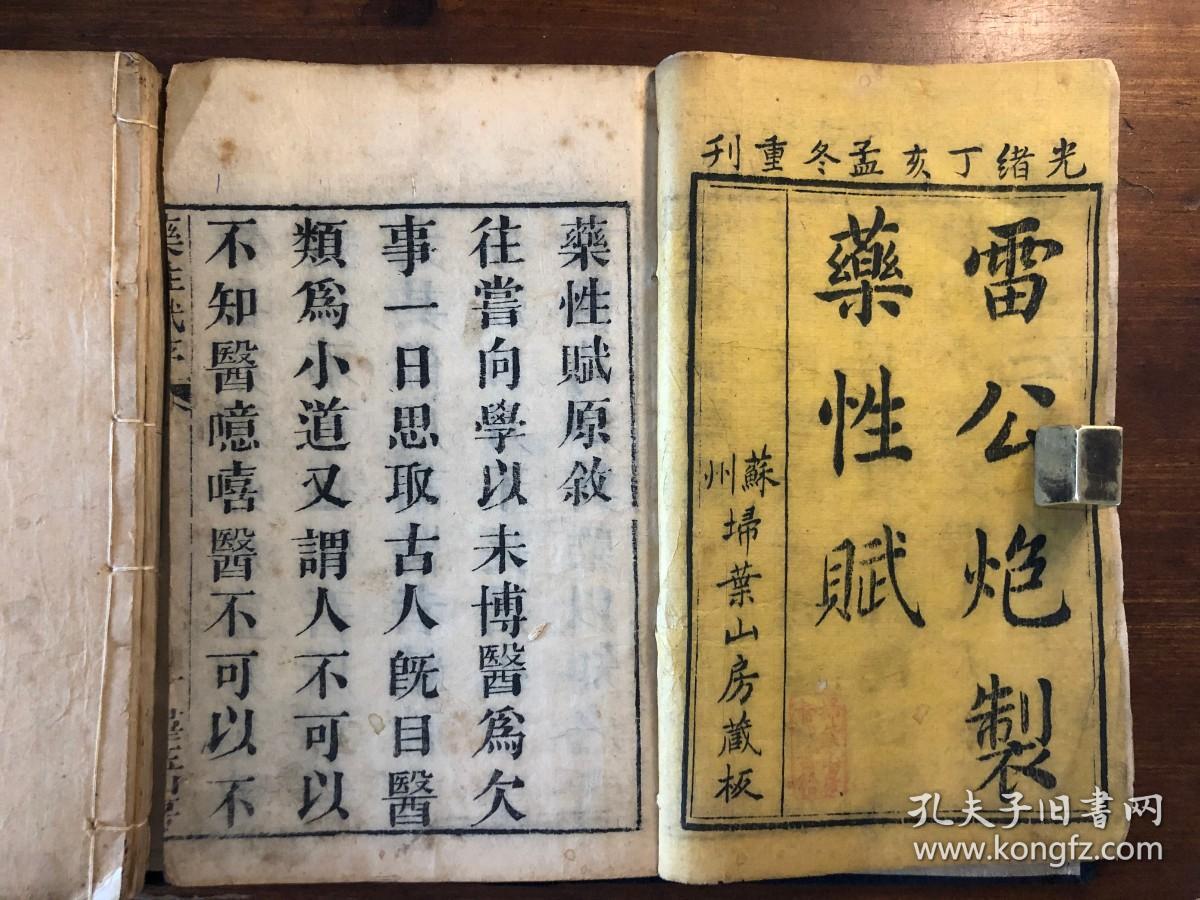 光緒丁亥孟冬重刊
雷公炮製
藥性賦
蘇州
埽葉山房藏板
藥性賦原敘
往嘗向學以未博醫爲欠
事一日思取古人旣目醫
類爲小道又謂人不可以
不知醫噫嘻醫不可以不
藥性賦序
孔夫子旧書网
www.kongfz.com